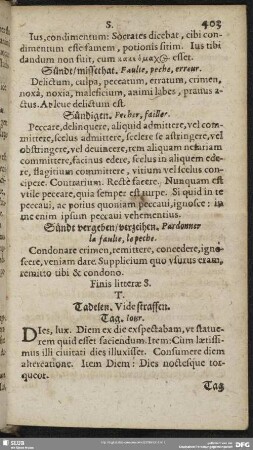 S. 403
Ius, condimentum: Socrates dicebat, cibi con-
dimentum esse famem, potionis sitim. Ius tibi
dandum non fuit, cum esset.
Sündt/missethat. Faulte, peche, erreur.
Delictum, culpa, peccatum, erratum, crimen,
noxa, noxia, maleficium, animi labes, pravus a-
ctus. Apleue delictum est.
Sündigen. Pecher, failler.
Peccare, delinquere, aliquid admittere, vel com-
mittere, scelus admittere, scelere se astringere, vel
obstringere, vel devincere, rem aliquam nefariam
committere, facinus edere, scelus in aliquem ede-
re, flagitium committere, vitium vel scelus con-
cipere. Contrarium: Recte facere. Nunquam est
vtile peccare, quia semper est turpe. Si quid in te
peccaui, ac potius quoniam peccaui, ignosce: in
me enim ipsum peccaui vehementius.
Sündt vergeben/verzeihen. Pardonner
la faulte, lo peche.
Condonare crimen, remittere, concedere, igno-
scere, veniam dare. Supplicium quo vsurus eram,
remitto tibi & condono.
Finis litteræ S.
T.
Tadelen. Vide straffen.
Tag. Iour.
DIes, lux. Diem ex die exspectabam, vt statue-
rem quid esset faciendum. Item: Cum lætissi-
mus illi ciuitati dies illuxisset. Consumere diem
altercatione. Item Diem: Dies noctesque tor-
queor.
Tag
SLUB
DFG